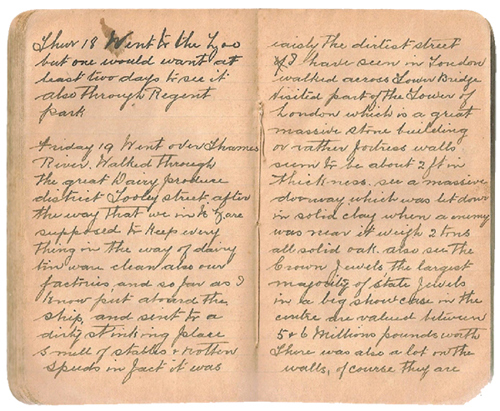 Thur 18 Went to the Zoo
but one would want at
least two days to see it
also through Regent
park
Friday 19 Went over Thames
River. Walked through
the great Dairy produce
district Tooley street, after
the way that we in N Z are
supposed to keep every
thing in the way of dairy
tin ware clean also our
factories and so far as I
know put aboard the
ship, and sent to a
dirty stinking place
smell of stables & rotten
spuds in fact it was
easily the dirtiest street
I have seen in London
walked across Tower Bridge
Visited part of the Tower of
London which is a great
massive stone building
or rather fortress walls
seem to be about 2 ft in
thickness. see a massive
doorway which was let down
in solid clay when a enemy
was near it weigh 2 tons
all solid oak. also see the
Crown Jewels the largest
majority of state Jewels
in a big show case in the
centre are valued between
5 & 6 Millions pounds worth
There was also a lot on the
walls, of course they are